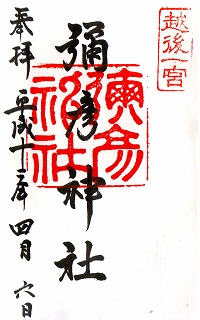 越後一宮
彌彦神社
彌彦神社
奉拝
平成十二年四月六日